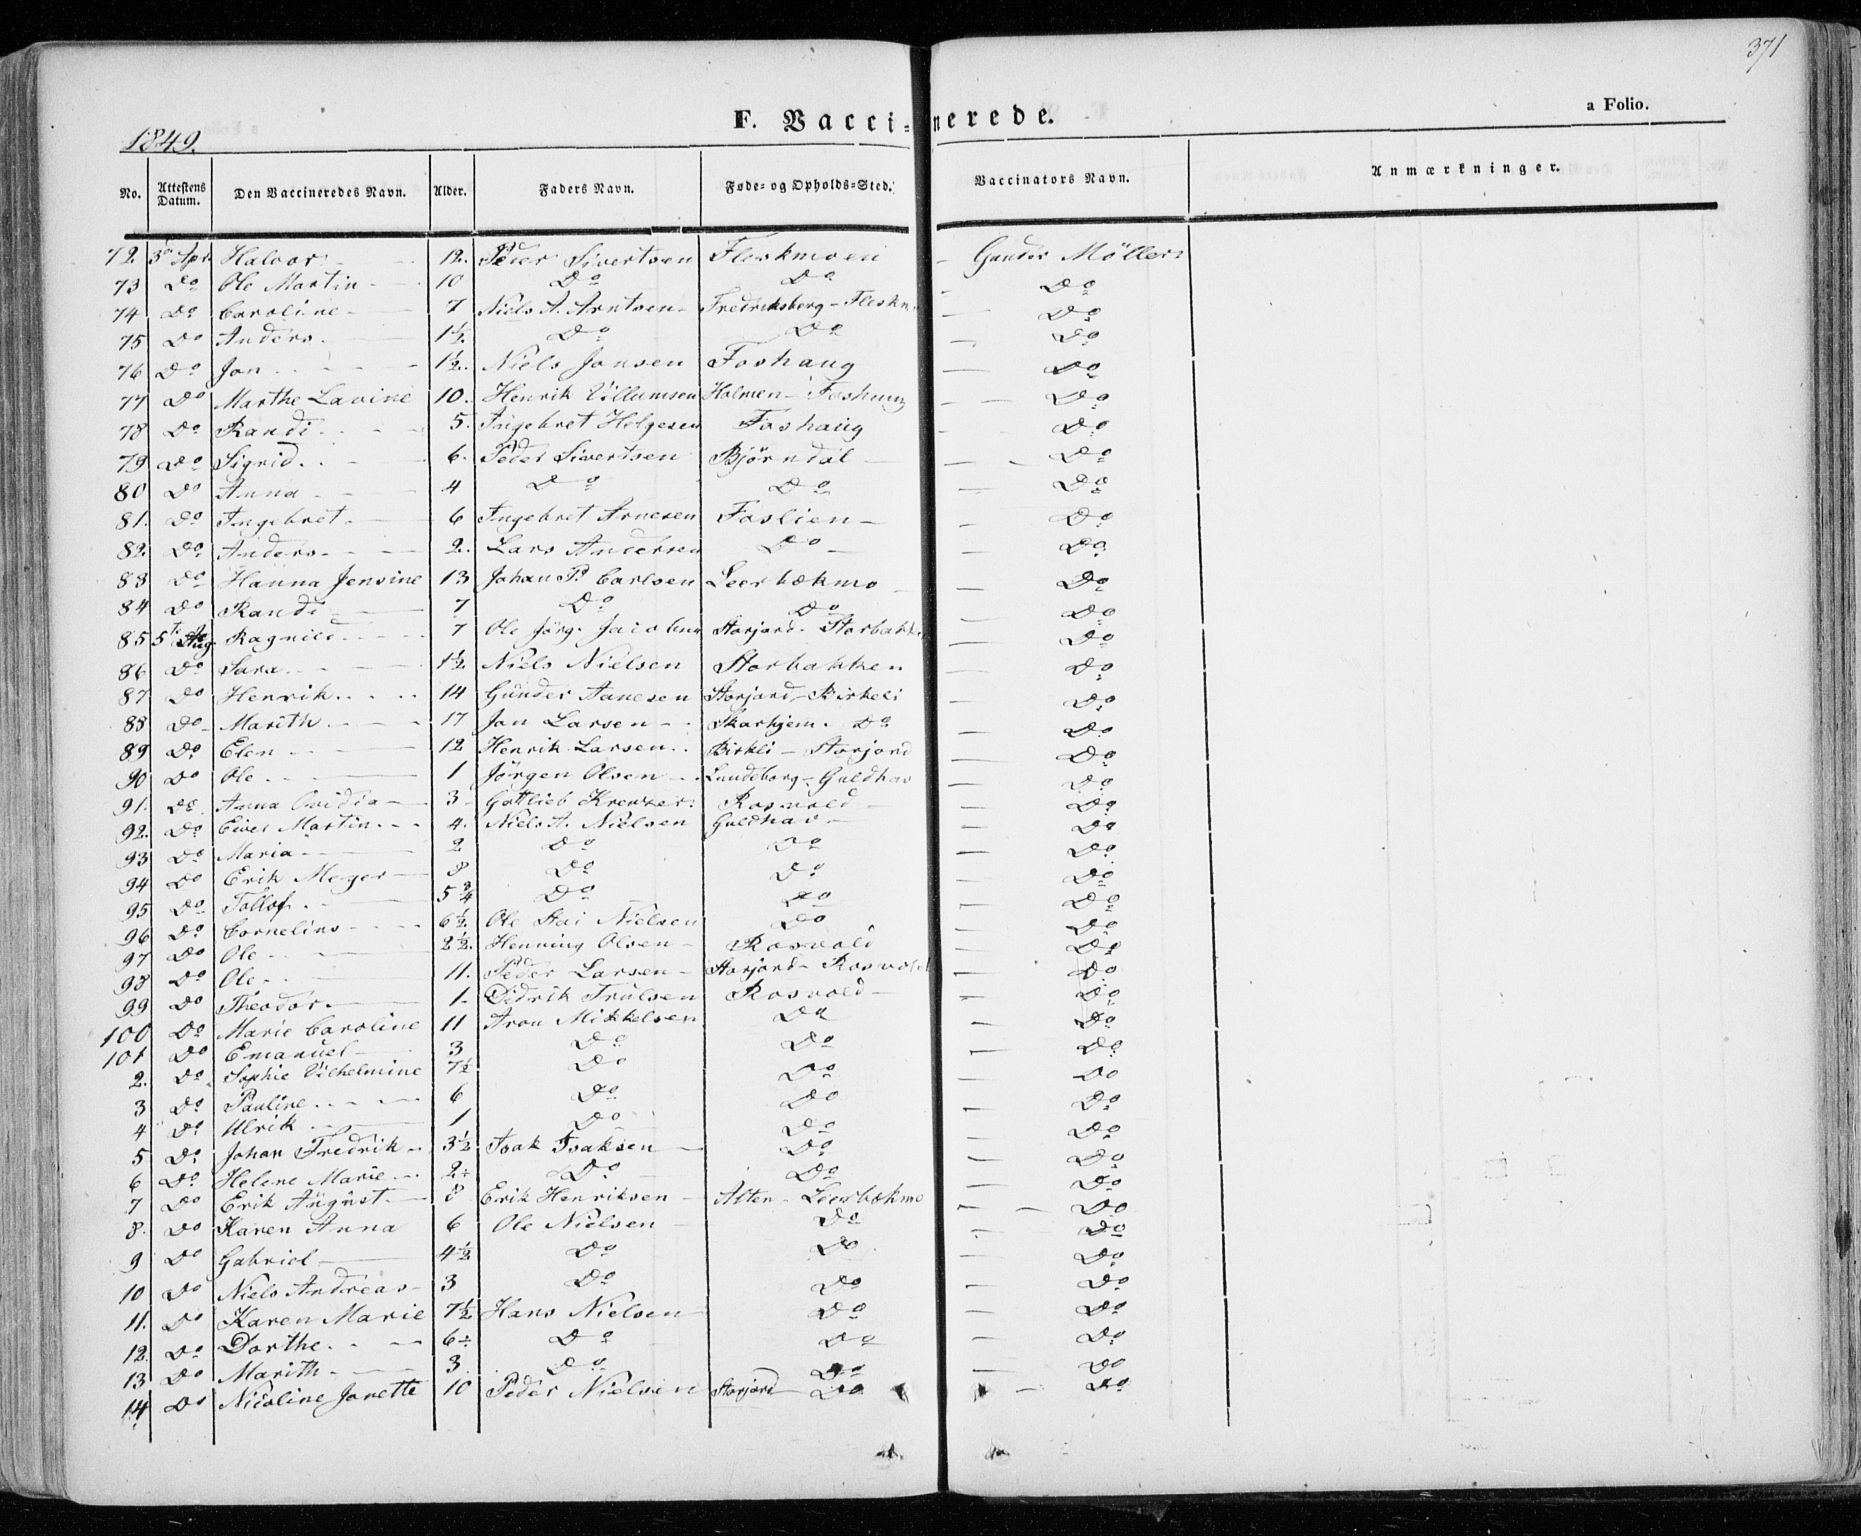 371
1849.
F. Vaccinerede.
a Folio.
No. Attestens Datum. Den Vaccineredes Navn. Alder. Faders Navn. Føde- og Opholds-Sted. Vaccinators Navn. Anmærkninger.
72. 3d Apr Halvor 12. Peder Sivertsen Fleskmoen Gunder Møller
73 Do Ole Martin 10 Do Do Do
74 Do Caroline 7 Niels A. Arntsen Fredriksberg - Fleskm Do
75 Do Anders 1½. Do Do Do
76 Do Jon 1½. Niels Jonsen Foshaug Do
77 Do Marthe Lavine 10. Henrik Villumsen Holmen - Foshaug Do
78 Do Randi 5. Ingebret Helgesen Foshaug Do
79 Do Sigrid 6. Peder Sivertsen Bjørndal Do
80 Do Anna 4 Do Do Do
81. Do Ingebret 6 Ingebret Arnesen Foslien Do
82. Do Anders 2. Lars Andersen Do Do
83 Do Hanna Jensine 13 Johan P. Carlsen Leerbækmo Do
84 Do Randi 7 Do Do Do
85 5te Aug Ragnild 7 Ole Jørg. Jacobsen Storjord - Storbakken Do
86 Do Sara 1½ Niels Nielsen Storbakken Do
87 Do Henrik 14 Gunder Aanesen Storjord - Birkeli Do
88 Do Marith 17 Jon Larsen Skarhjem. Do Do
89 Do Elen 12 Henrik Larsen Birkli - Storjord Do
90 Do Ole 1 Jørgen Olsen Lundeborg - Guldhav Do
91. Do Anna Ovidia 3 Gottlieb Kreutzer Rosvold Do
92. Do Eiver Martin 4. Niels A. Nielsen Guldhav Do
93 Do Maria 2 Do Do Do
94 Do Erik Meyer 8 Do Do Do
95 Do Tollof 5¾ Do Do Do
96 Do Cornelius 6½ Ole Nielsen Do Do
97 Do Ole 2½ Henning Olsen Rosvold Do
98 Do Ole 11. Peder Larsen Storjord - Rosvold Do
99 Do Theodor 1. Didrik Trulsen Rosvold Do
100 Do Marie Caroline 11 Aron Mikkelsen Do Do
101 Do Emanuel 3 Do Do Do
2. Do Sophie Vilhelmine 7½ Do Do Do
3 Do Pauline 6 Do Do Do
4 Do Ulrik 1 Do Do Do
5 Do Johan Fredrik 3½ Isak Isaksen Do Do
6 Do Helene Marie 2 Do Do Do
7 Do Erik August 8 Erik Henriksen Alten - Leerbækmo Do
8. Do Karen Anna 6 Ole Nielsen Do Do
9 Do Gabriel 4½ Do Do Do
10 Do Niels Andreas 3 Do Do Do
11. Do Karen Marie 7½ Hans Nielsen Do Do
12. Do Dorthe 6 Do Do Do
13 Do Marith 3 Do Do Do
14 Do Nicoline Janette 10 Peder Nielsen Storjord Do Do